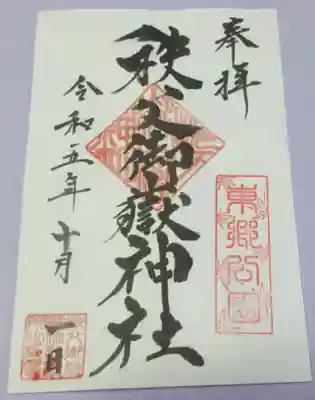 奉拝
東郷公園
秩父御嶽神社
令和五年十月
一日